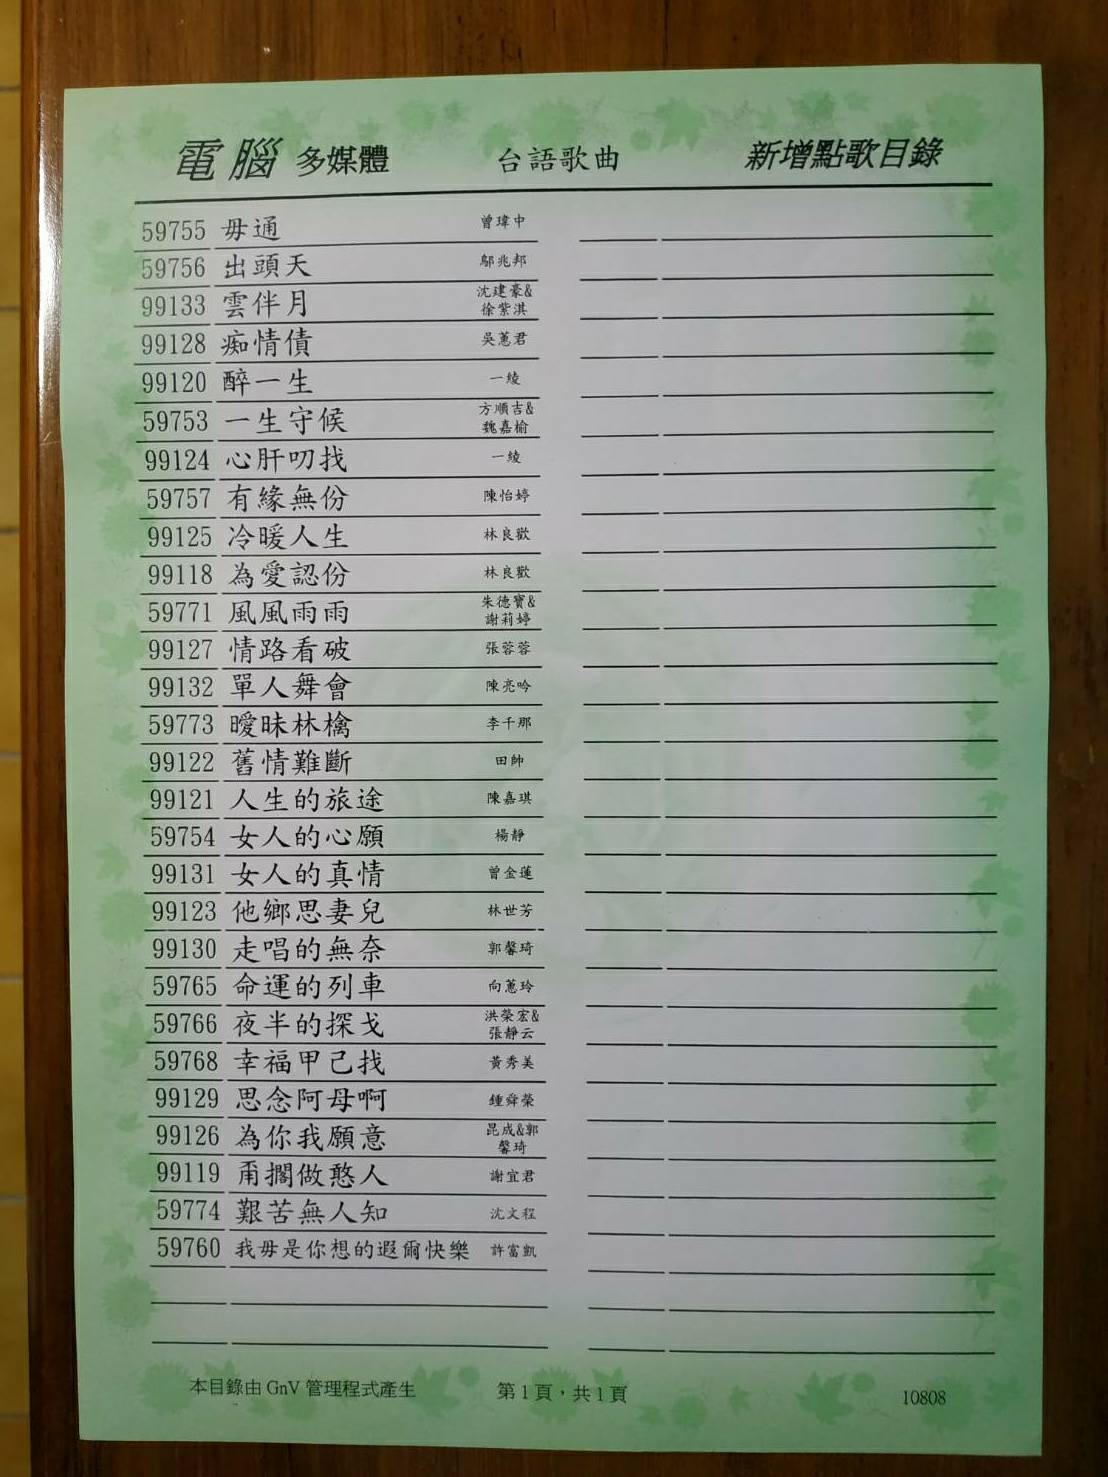 電腦 多媒體 台語歌曲 新增點歌目錄
59755 毋通 曾瑋中
59756 出頭天 鄔兆邦
99133 雲伴月 沈建豪&
徐紫淇
99128 痴情債 吳蕙君
99120 醉一生 一綾
59753 一生守候 方順吉&
魏嘉榆
99124 心肝叨找 一綾
59757 有緣無份 陳怡婷
99125 冷暖人生 林良歡
99118 為愛認份 林良歡
59771 風風雨雨 朱德寶&
謝莉婷
99127 情路看破 張蓉蓉
99132 單人舞會 陳亮吟
59773 曖昧林檎 李千那
99122 舊情難斷 田帥
99121 人生的旅途 陳嘉琪
59754 女人的心願 楊靜
99131 女人的真情 曾金蓮
99123 他鄉思妻兒 林世芳
99130 走唱的無奈 郭馨琦
59765 命運的列車 向蕙玲
59766 夜半的探戈 洪榮宏&
張靜云
59768 幸福甲己找 黃秀美
99129 思念阿母啊 鍾舜榮
99126 為你我願意 昆成&郭
馨琦
99119 甭擱做憨人 謝宜君
59774 艱苦無人知 沈文程
59760 我毋是你想的遐爾快樂 許富凱
本目錄由 GnV 管理程式產生 第1頁，共1頁 10808